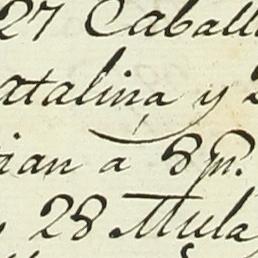 27 Caball
atalina y 2
ian a 8 p.
28 Mula